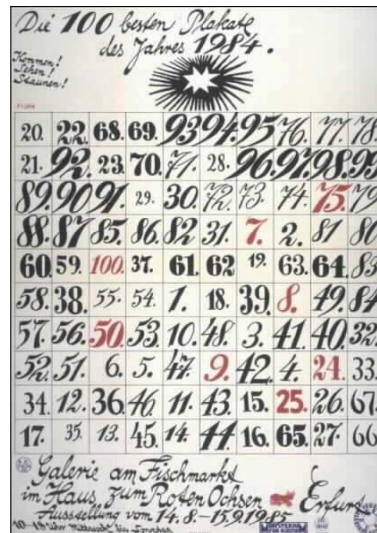 Die 100 besten Plakate
des Jahres 1984.
Kommen!
Sehen!
Staunen!
20. 22. 68. 69. 93. 94. 95. 76. 77. 78.
21. 92. 23. 70. 71. 28. 96. 97. 98. 99
89. 90. 91. 29. 30. 72. 73. 74. 75. 79
88. 87. 85. 86. 82 31. 7. 2. 81 80
60. 59. 100. 37. 61. 62 19. 63. 64. 83
58. 38. 55. 54. 1. 18. 39. 8. 49. 84
57. 56. 50. 53. 10. 48. 3. 41. 40. 32.
52. 51. 6. 5. 47. 9. 42. 4. 24. 33.
34. 12. 36. 46. 11. 43. 15. 25. 26. 67.
17. 35. 13. 45. 14. 44 16. 65. 27. 66
Galerie am Fischmarkt
im Haus zum Roten Ochsen Erfurt
Ausstellung vom 14.8.-15.9.1985
10-18 Uhr Mittwoch bis